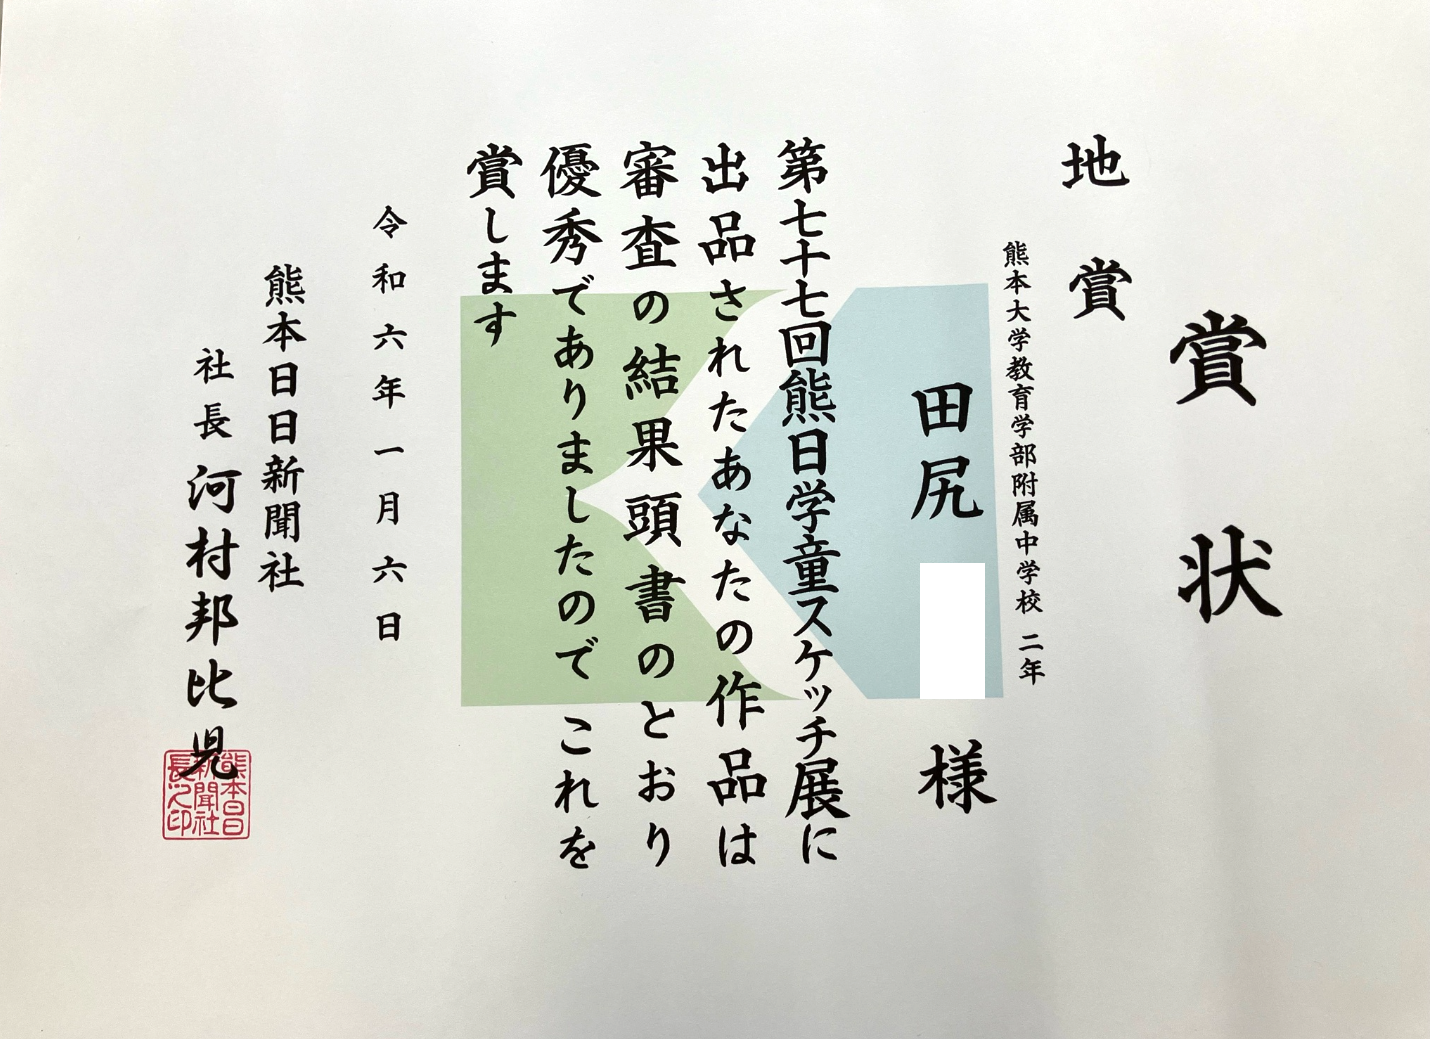 賞状
地賞
熊本大学教育学部附属中学校 二年
田尻 様
第七十七回熊日学童スケッチ展に
出品されたあなたの作品は
審査の結果頭書のとおり
優秀でありましたのでこれを
賞します
令和六年一月六日
熊本日日新聞社
社長 河村邦比児
熊本日日
新聞社
長之印